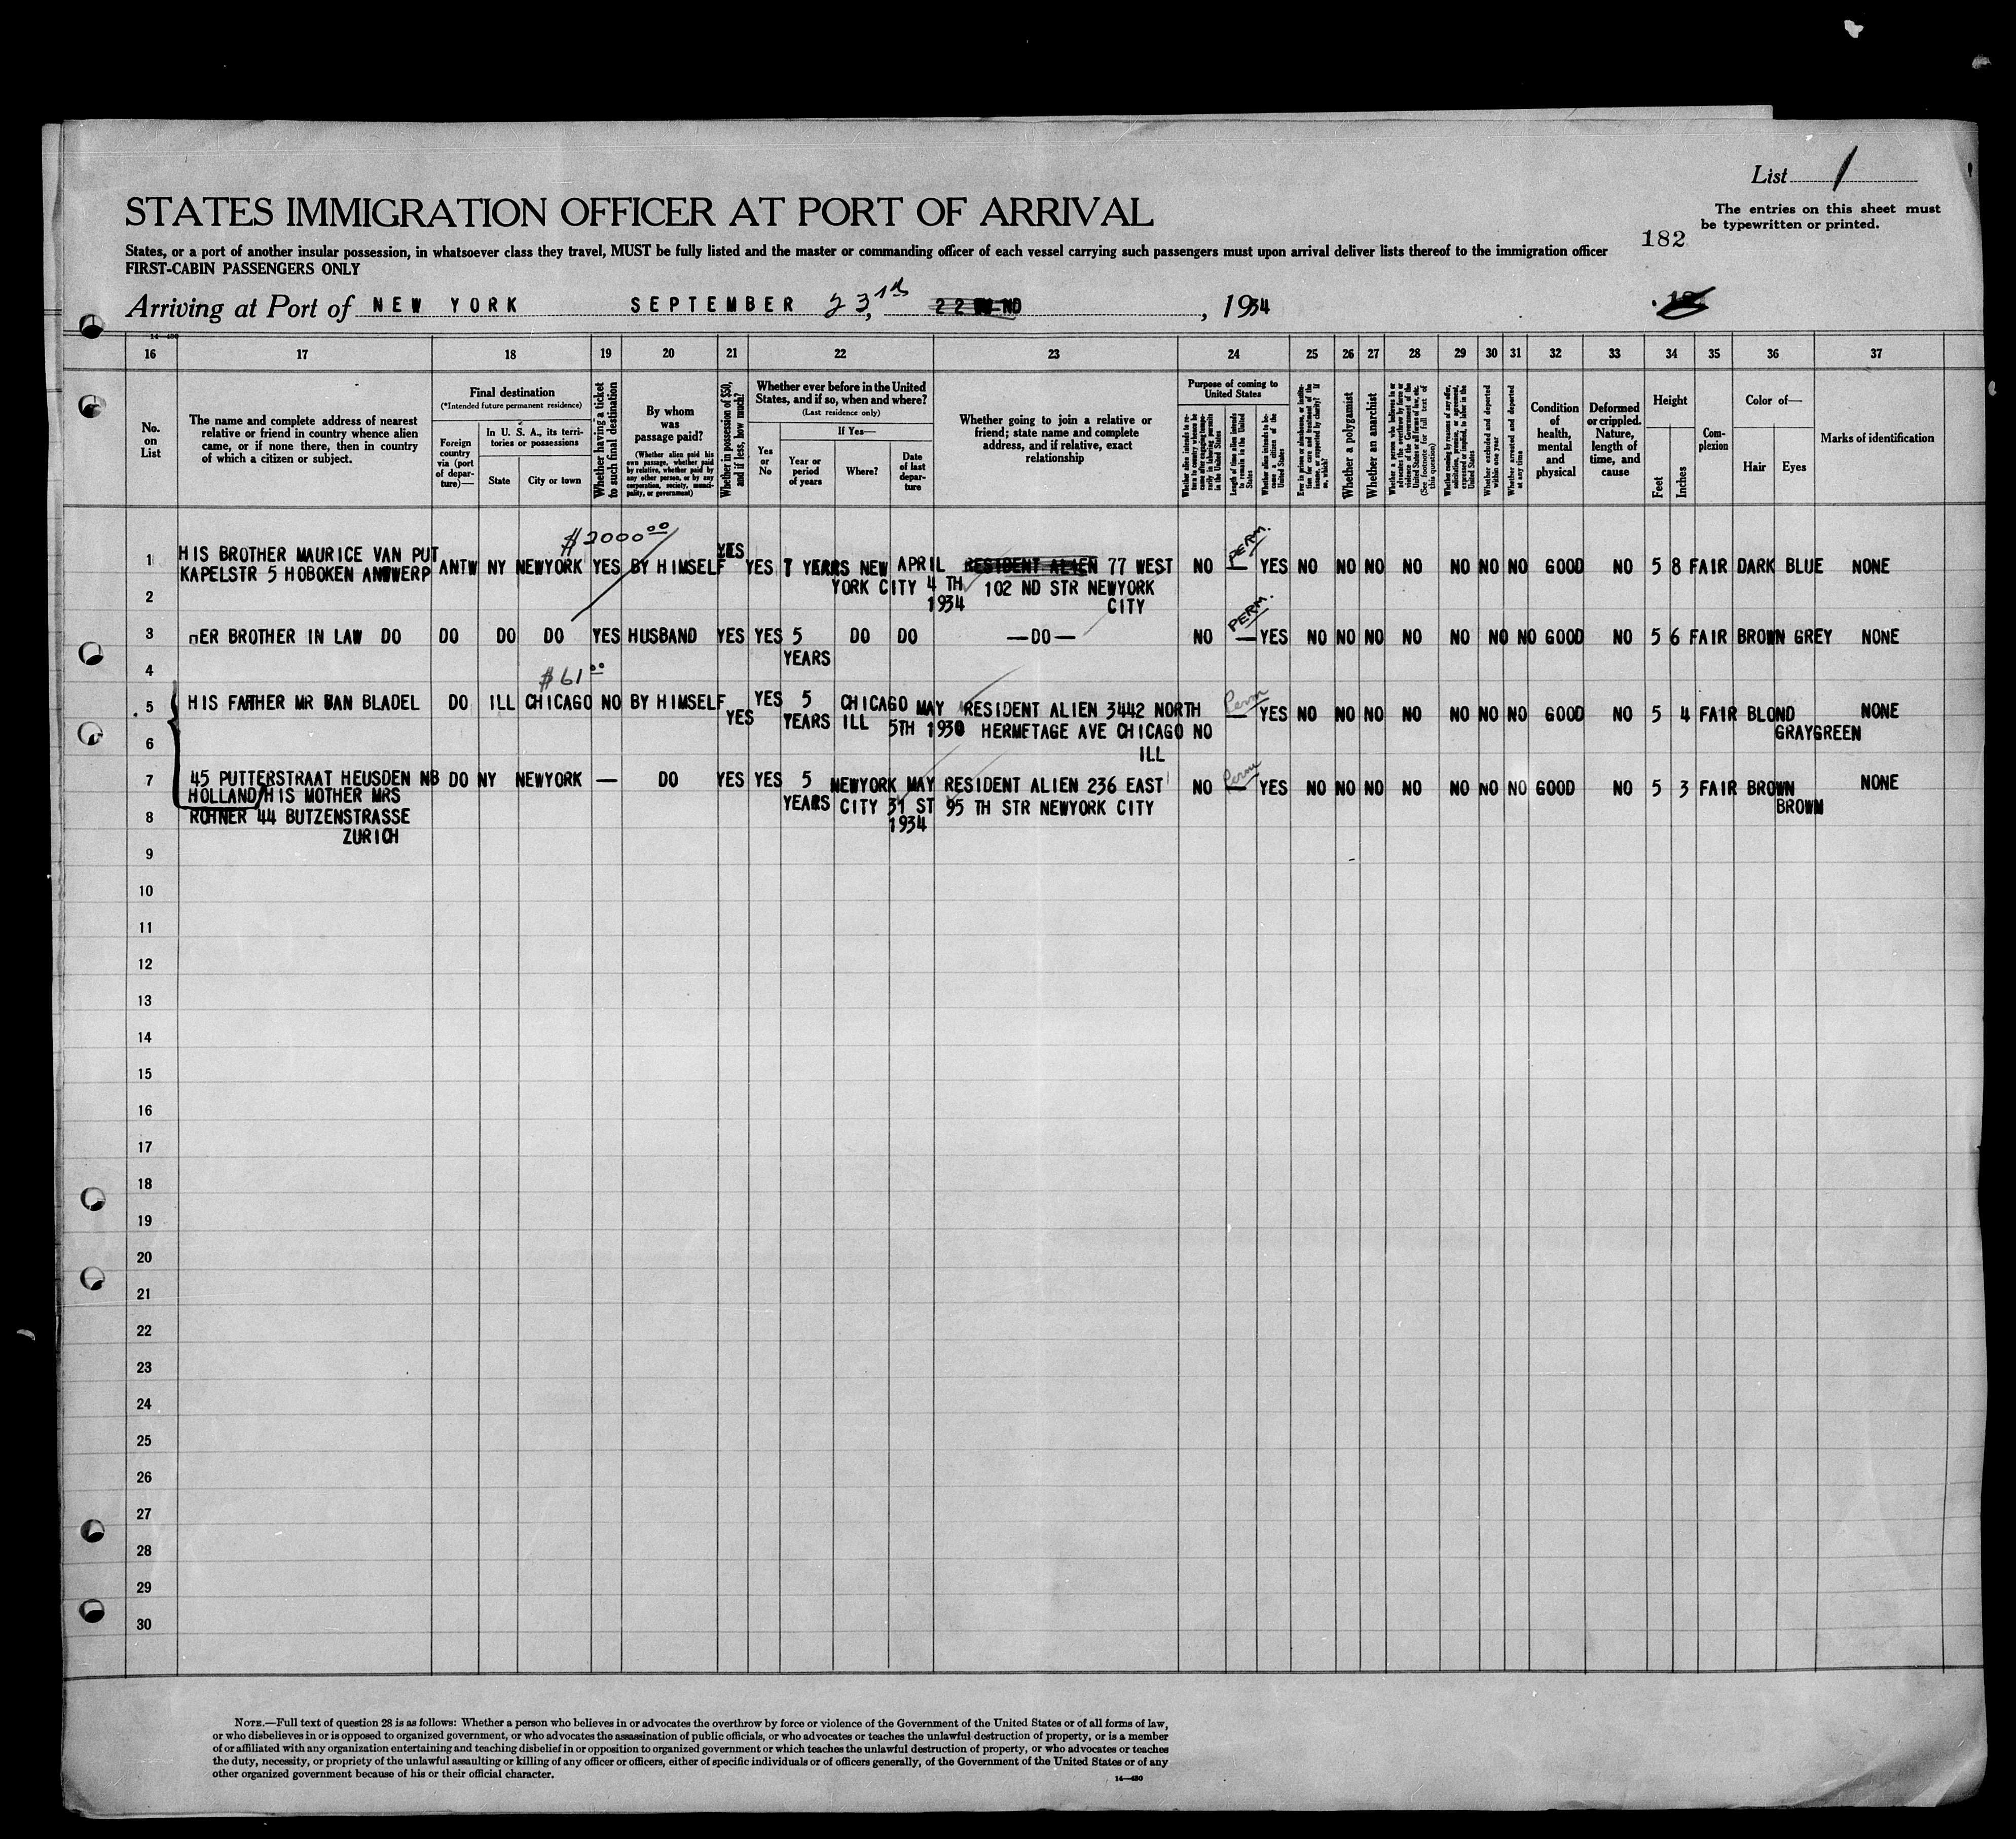 List 1
The entries on this sheet must
be typewritten or printed.
182
STATES IMMIGRATION OFFICER AT PORT OF ARRIVAL
States, or a port of another insular possession, in whatsoever class they travel, MUST be fully listed and the master or commanding officer of each vessel carrying such passengers must upon arrival deliver lists thereof to the immigration officer
FIRST-CABIN PASSENGERS ONLY
Arriving at Port of NEW YORK SEPTEMBER 23rd, 22 ND, 1934
14—430
16 17 18 19 20 21 22 23 24 25 26 27 28 29 30 31 32 33 34 35 36 37
No.
on
List
The name and complete address of nearest
relative or friend in country whence alien
came, or if none there, then in country
of which a citizen or subject.
Final destination
(*Intended future permanent residence)
Foreign
country
via (port
of depar-
ture)—
In U. S. A., its terri-
tories or possessions
State
City or town
Whether having a ticket
to such final destination
By whom
was
passage paid?
(Whether alien paid his
own passage, whether paid
by relative, whether paid by
any other person, or by any
corporation, society, munici-
pality, or government)
Whether in possession of $50,
and if less, how much?
Whether ever before in the United
States, and if so, when and where?
(Last residence only)
Yes
or
No
If Yes—
Year or
period
of years
Where?
Date
of last
depar-
ture
Whether going to join a relative or
friend; state name and complete
address, and if relative, exact
relationship
Purpose of coming to
United States
Whether alien intends to re-
turn to country whence he
came after engaging tempo-
rarily in laboring pursuits
in the United States
Length of time alien intends
to remain in the United
States
Whether alien intends to be-
come a citizen of the
United States
Ever in prison or almshouse, or institu-
tion for care and treatment of the
insane, or supported by charity? If
so, which?
Whether a polygamist
Whether an anarchist
Whether a person who believes in or
advocates the overthrow by force or
violence of the Government of the
United States or all forms of law, etc.
(See footnote for full text of
this question)
Whether coming by reason of any offer,
solicitation, promise, or agreement,
expressed or implied, to labor in the
United States
Whether excluded and deported
within one year
Whether arrested and deported
at any time
Condition
of
health,
mental
and
physical
Deformed
or crippled.
Nature,
length of
time, and
cause
Height
Feet
Inches
Com-
plexion
Color of—
Hair
Eyes
Marks of identification
$2000 00
1 HIS BROTHER MAURICE VAN PUT ANTW NY NEWYORK YES BY HIMSELF YES YES 7 YEARS NEW APRIL RESIDENT ALIEN 77 WEST NO PERM. — YES NO NO NO NO NO NO NO GOOD NO 5 8 FAIR DARK BLUE NONE
KAPELSTR 5 HOBOKEN ANTWERP YORK CITY 4 TH 102 ND STR NEWYORK
2 1934 CITY
3 HER BROTHER IN LAW DO DO DO DO YES HUSBAND YES YES 5 DO DO —DO— NO PERM. — YES NO NO NO NO NO NO NO GOOD NO 5 6 FAIR BROWN GREY NONE
YEARS
4
$61 00
5 HIS FATHER MR VAN BLADEL DO ILL CHICAGO NO BY HIMSELF YES YES 5 CHICAGO MAY RESIDENT ALIEN 3442 NORTH Perm — YES NO NO NO NO NO NO NO GOOD NO 5 4 FAIR BLOND NONE
YEARS ILL 5TH 1930 HERMETAGE AVE CHICAGO NO GRAYGREEN
6 ILL
7 45 PUTTERSTRAAT HEUSDEN NB DO NY NEWYORK — DO YES YES 5 NEWYORK MAY RESIDENT ALIEN 236 EAST NO Perm — YES NO NO NO NO NO NO NO GOOD NO 5 3 FAIR BROWN NONE
HOLLAND/HIS MOTHER MRS YEARS CITY 31 ST 95 TH STR NEWYORK CITY BROWN
8 ROHNER 44 BUTZENSTRASSE 1934
ZURICH
9
10
11
12
13
14
15
16
17
18
19
20
21
22
23
24
25
26
27
28
29
30
NOTE.—Full text of question 28 is as follows: Whether a person who believes in or advocates the overthrow by force or violence of the Government of the United States or of all forms of law,
or who disbelieves in or is opposed to organized government, or who advocates the assassination of public officials, or who advocates or teaches the unlawful destruction of property, or is a member
of or affiliated with any organization entertaining and teaching disbelief in or opposition to organized government or which teaches the unlawful destruction of property, or who advocates or teaches
the duty, necessity, or propriety of the unlawful assaulting or killing of any officer or officers, either of specific individuals or of officers generally, of the Government of the United States or of any
other organized government because of his or their official character.
14—430